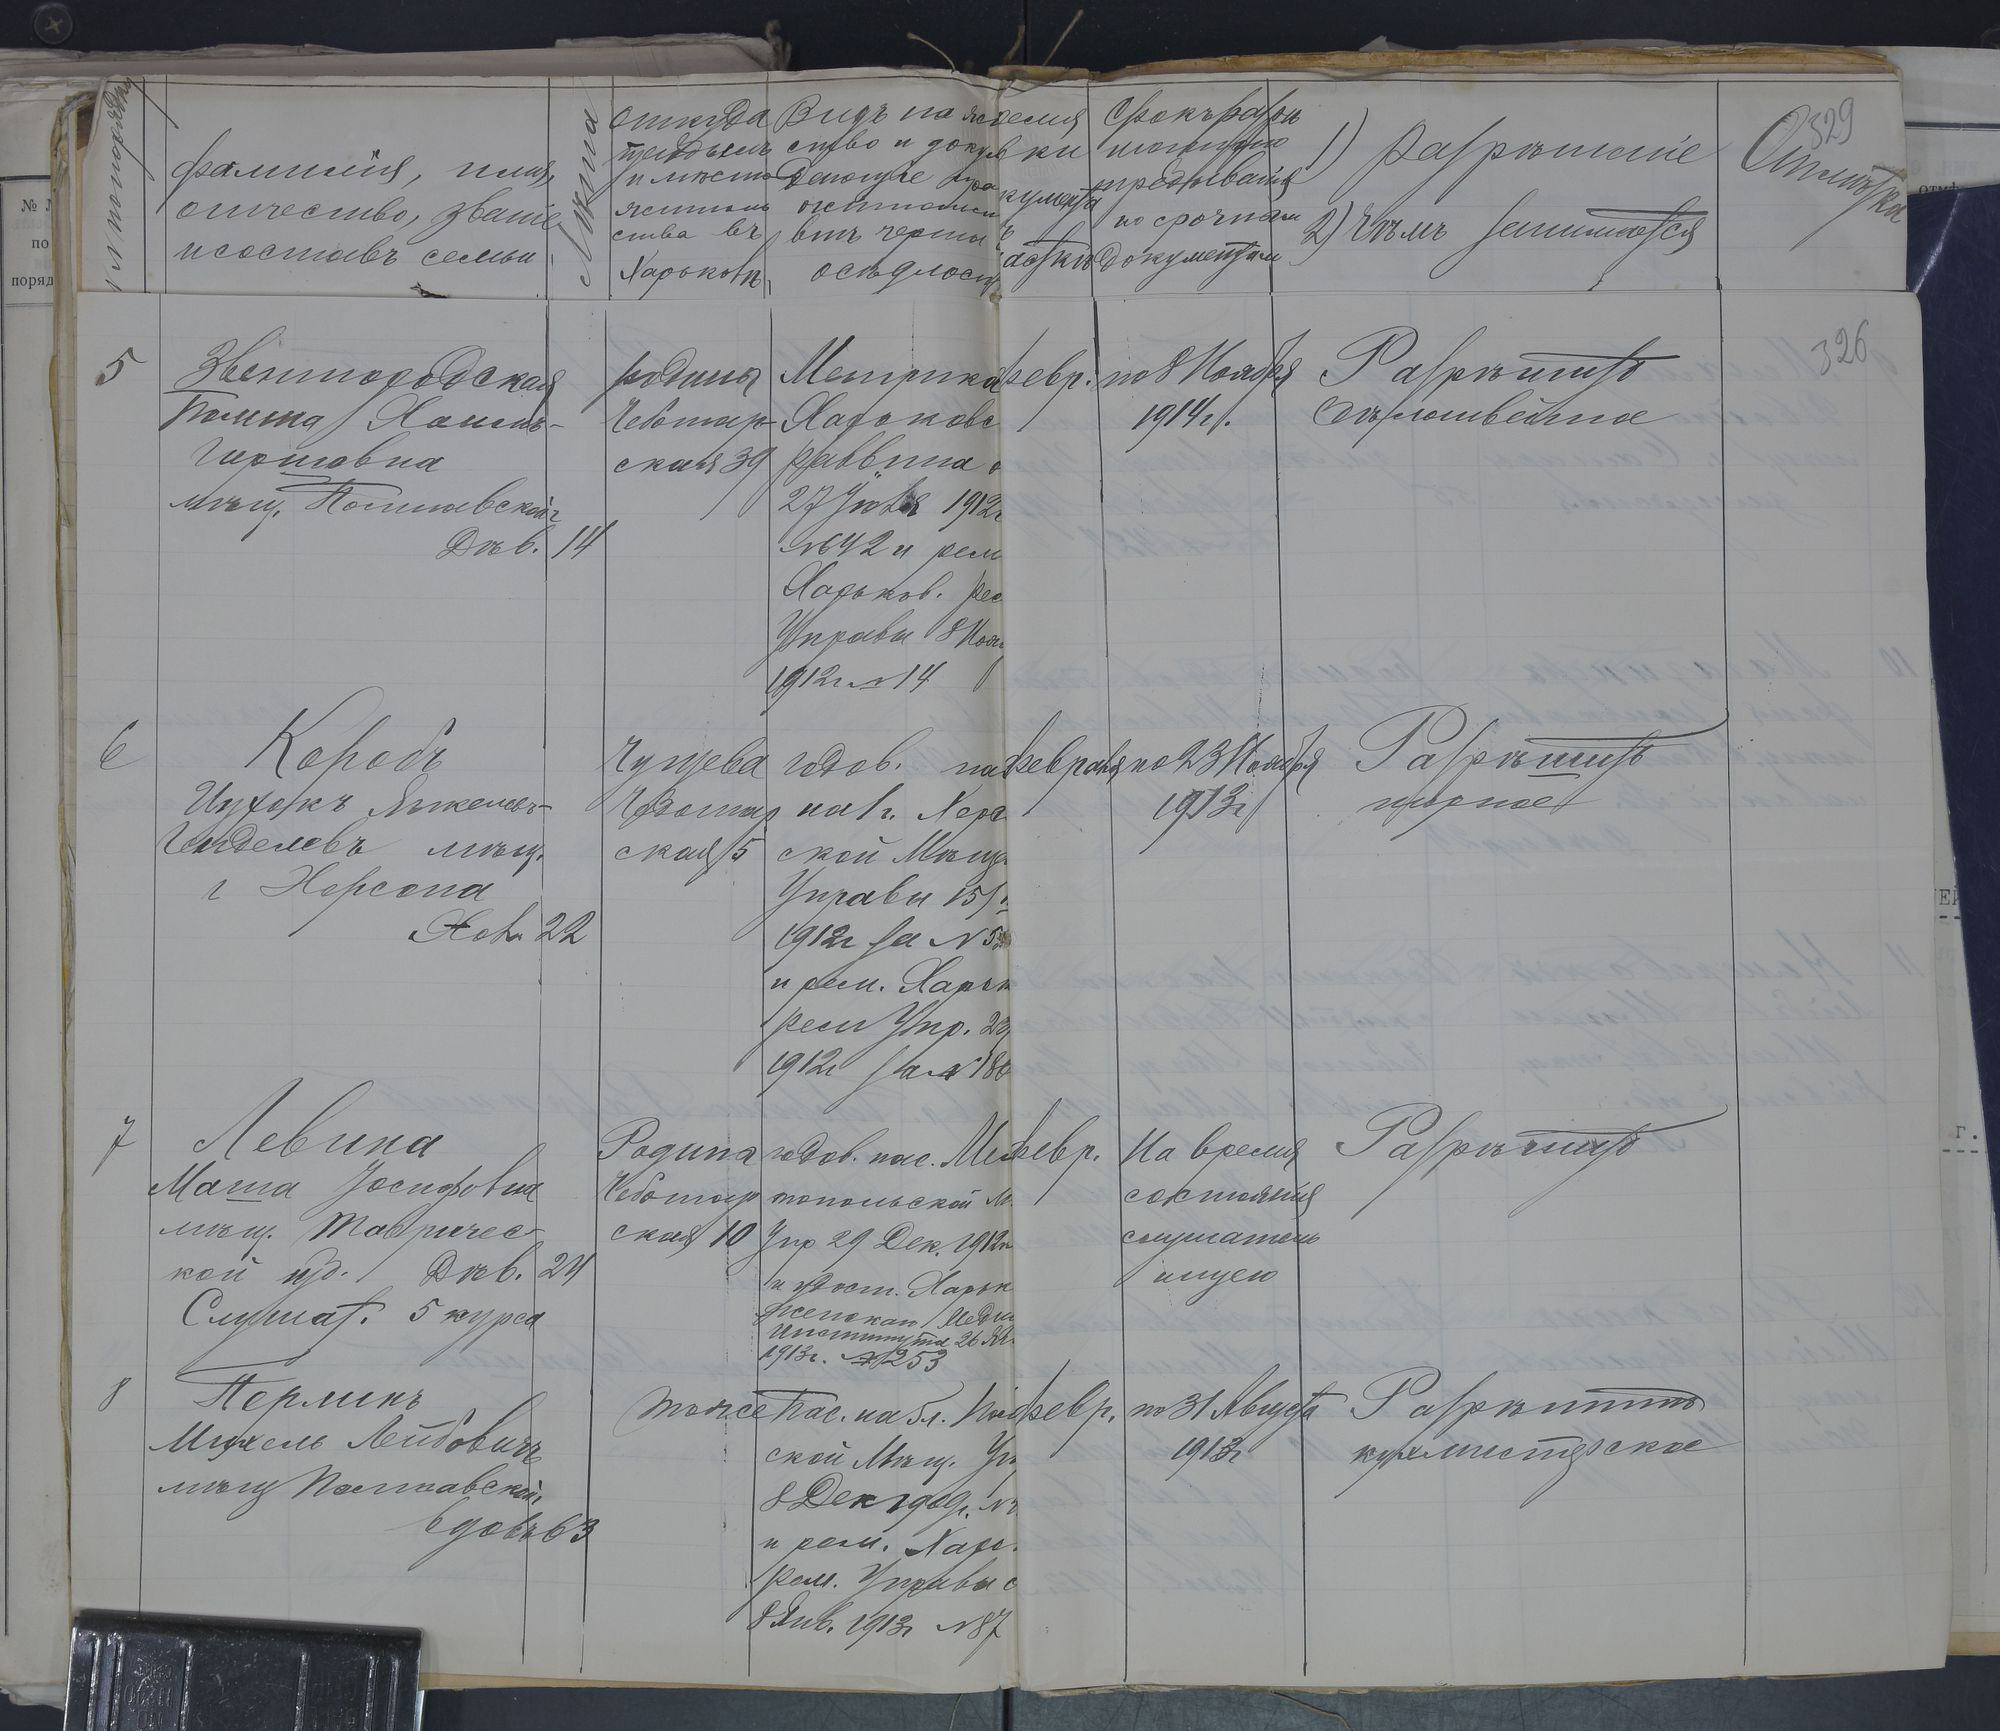 № по порядку
фамилія, имя,
отчество, званіе
и составъ семьи
Лѣта
откуда
прибылъ
и мѣсто
житель
ства въ
Харьковѣ
Видъ на
ство и
дающіе
внѣ черты
осѣдлос
Срокъ разрѣ
шеннаго
пребыванія
по срочнымъ
документам
1) Разрѣшеніе
2) Чѣмъ занимается
Отмѣтка
329
326
5
Звенигородская
Полина Хаимъ-
Гиршовна
мѣщ. Полтавской г
Дѣв. 14
родина
Чеботар-
ская 39
Метрика
Харьковс
раввина
27 1912г
№642 и рем
Харьков. рем
Управы 8 Нояб
1912г №14
Февр.
по 8 Ноября
1914г.
Разрѣшить
бѣлошвейное
6
Коробъ
Ицхокъ Янкелевъ-
Генделевъ мѣщ.
г Херсона
Хол. 22
Чугуева
Чеботар
ская 5
годов. па
на 1 г. Херс
ской Мѣщ
Управы 15
1912г за №5
и рем. Харьк
рем Упр. 23
1912г за №180
Февраля
по 23 Ноября
1913г
Разрѣшить
7
Левина
Маша Іосифовна
мѣщ. Тавричес-
кой губ. Дѣв. 24
Слушат. 5 курса
Родина
Чеботар
ская 10
годов. пас. Ме
топольской М
Упр 29 Дек. 1912г
и удост. Харьк
женскаго Меди
Института 26 Ян
1913г. №253
Февр.
На время
состоянія
слушатель
ницею
Разрѣшить
8
Перликъ
Михель Лейбовичъ
мѣщ Полтавской г
вдовъ 63
тоже
Пас. на 5 л.
ской Мѣщ. Уп
8 Дек 1909г. №
и рем. Харь
рем. Управы
8 Янв. 1913г №87
Февр.
по 31 Августа
1913г
Разрѣшить
кухмистерское